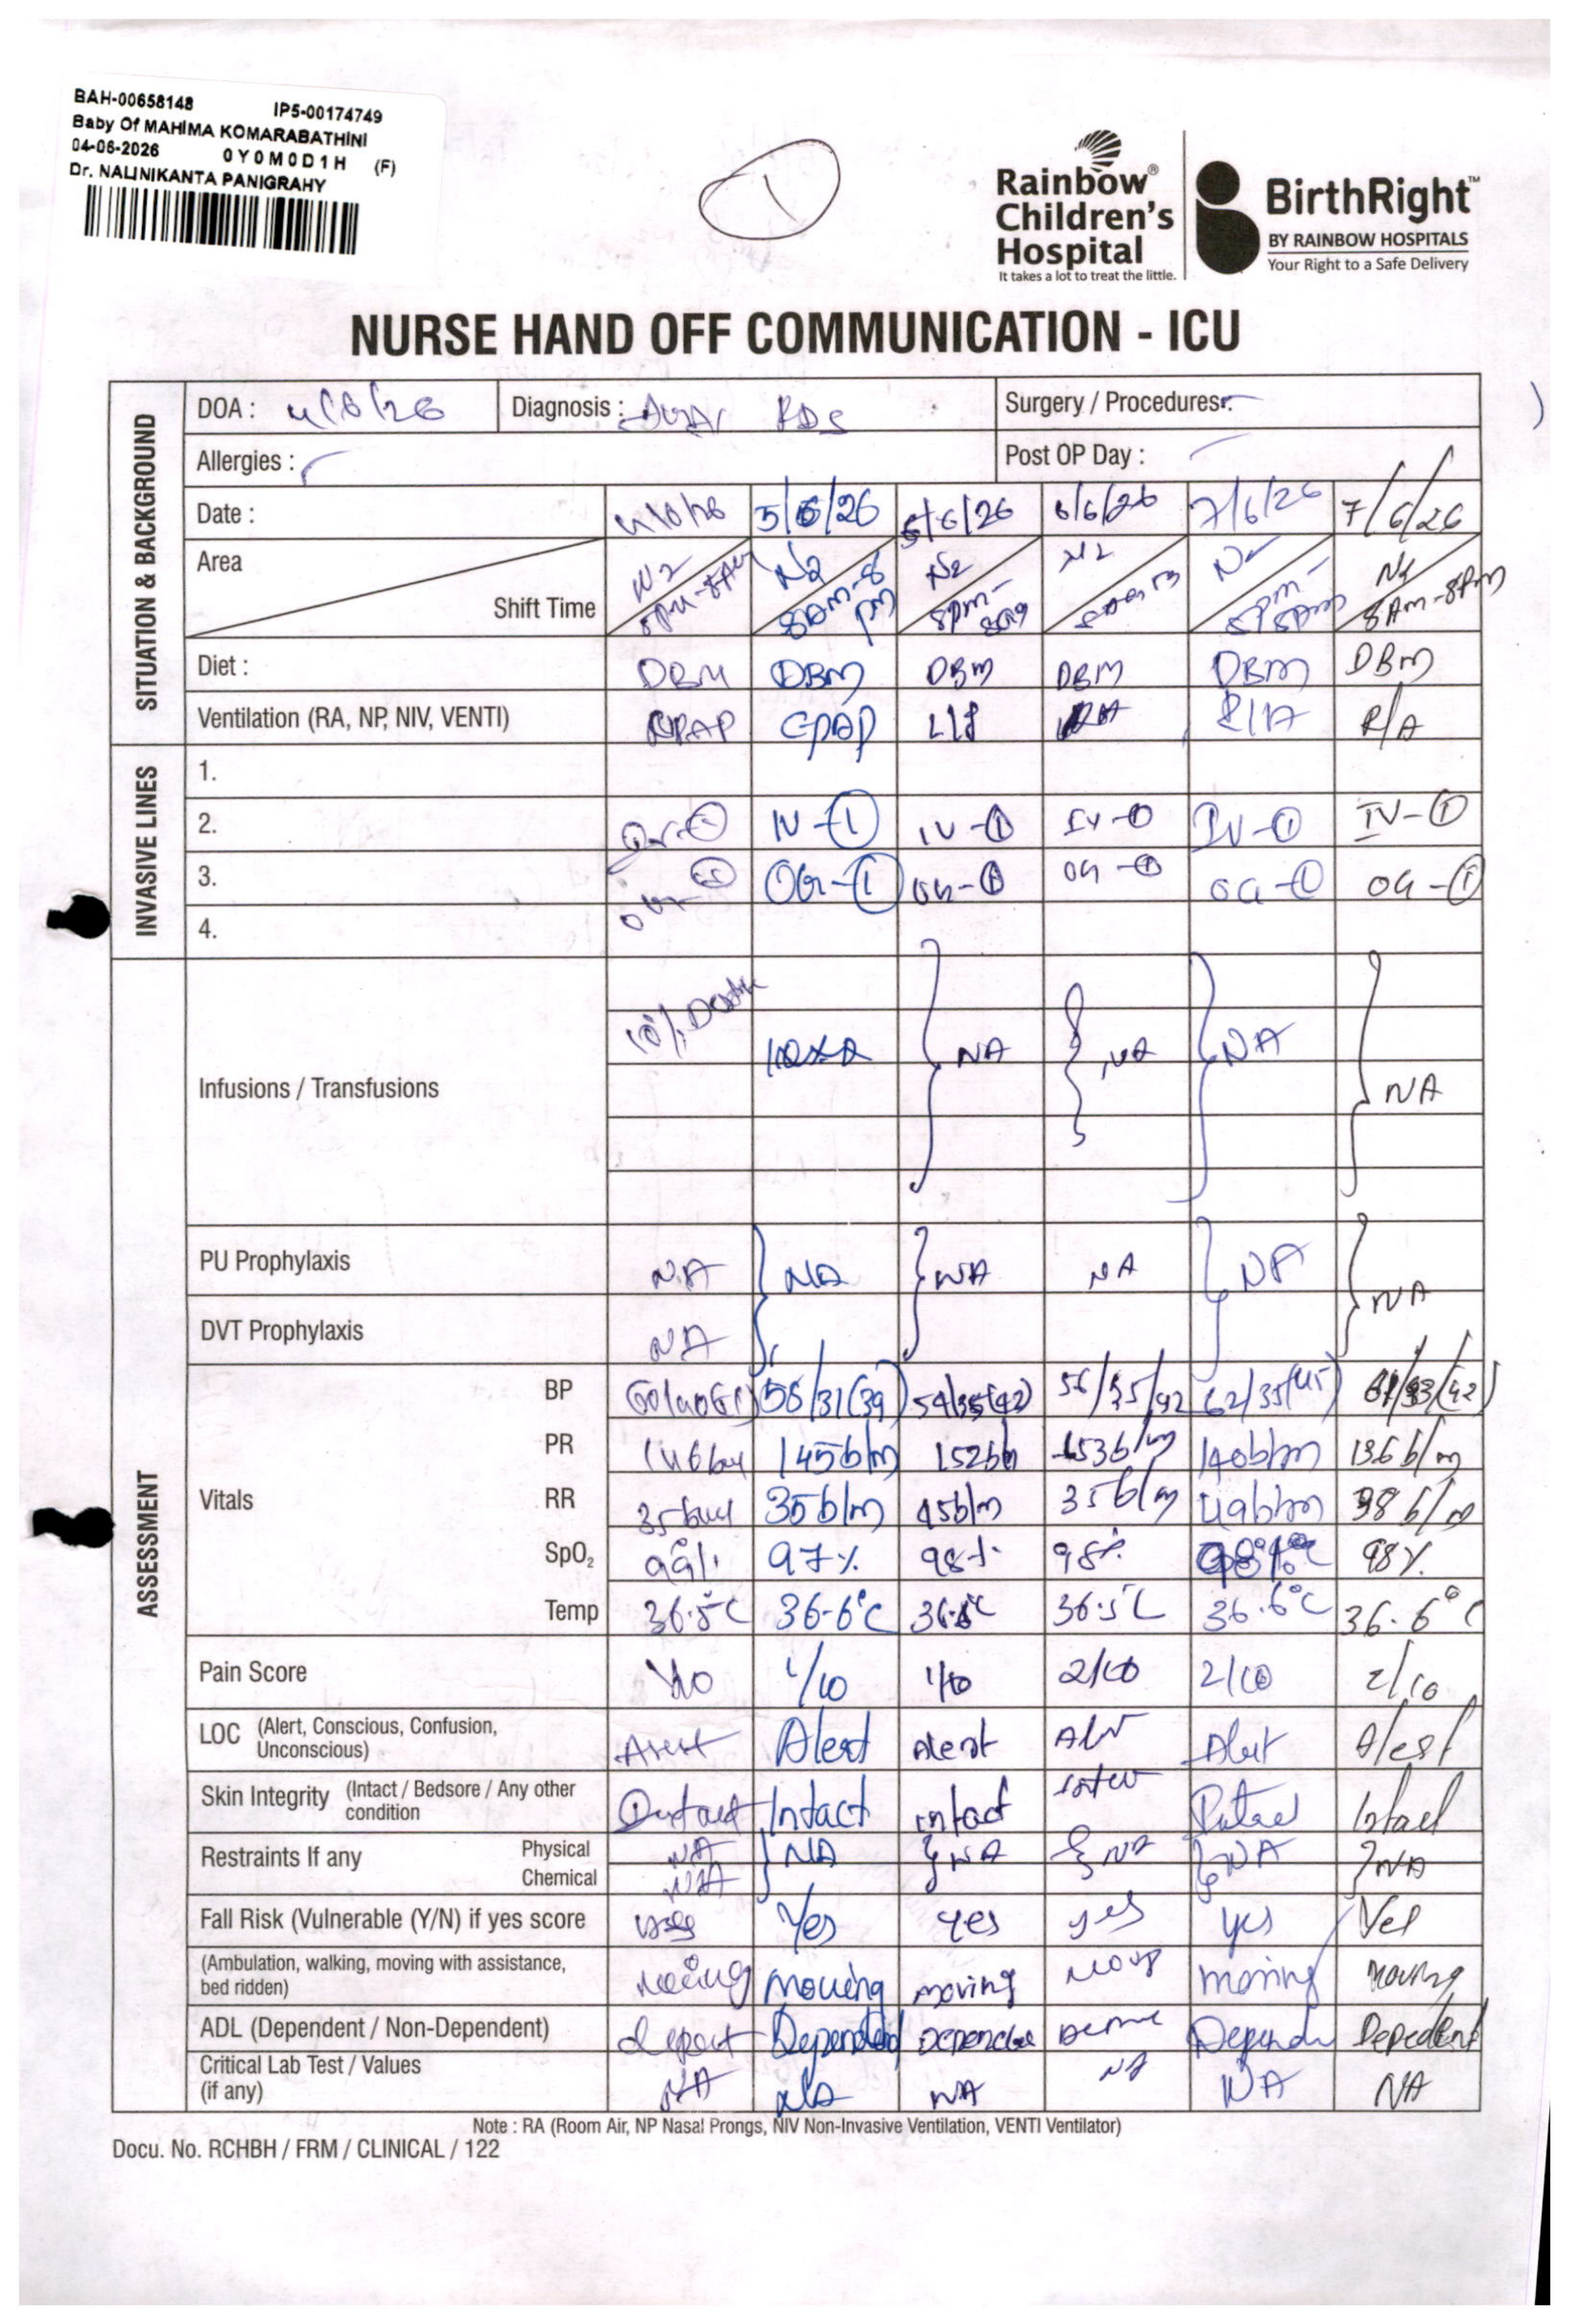 BAH-00658148 IP5-00174749
Baby Of MAHIMA KOMARABATHINI
04-06-2026 0Y0M0D1H (F)
Dr. NALINIKANTA PANIGRAHY
1
Rainbow® Children's Hospital
It takes a lot to treat the little.
BirthRight™
BY RAINBOW HOSPITALS
Your Right to a Safe Delivery
NURSE HAND OFF COMMUNICATION - ICU
SITUATION & BACKGROUND
DOA : 4/6/26 Diagnosis : RDS Surgery / Procedures:
Allergies : Post OP Day :
Date : 4/6/26 5/6/26 5/6/26 6/6/26 7/6/26 7/6/26
Area N2 N2 N2 N2 N2
Shift Time 8PM-8AM 8AM-8pm 8pm- 8pm-8am 8Am-8Pm
Diet : DBM DBM DBM DBM DBM DBM
Ventilation (RA, NP, NIV, VENTI) CPAP CPAP RA R/A R/A
INVASIVE LINES
1.
2. IV-① IV-① IV-① IV-① IV-①
3. OG-① OG-① OG-① OG-① OG-①
4.
ASSESSMENT
Infusions / Transfusions 10% NA NA NA NA
PU Prophylaxis NA NA NA NA NA NA
DVT Prophylaxis NA
Vitals
BP 58/31(39) 54/35(42) 56/35/42 62/35(45)
PR 146 145b/m 152b/m 153b/m 140b/m 136 b/m
RR 35 35b/m 45b/m 35b/m 49b/m 38 b/m
SpO₂ 99% 97% 98% 98% 98% 98%
Temp 36.5°C 36.6°C 36.6°C 36.5°C 36.6°C 36.6°C
Pain Score 1/10 1/10 2/10 2/10 2/10
LOC (Alert, Conscious, Confusion, Unconscious) Alert Alert Alert Alert Alert
Skin Integrity (Intact / Bedsore / Any other condition Intact Intact intact Intact Intact
Restraints If any Physical NA NA NA NA NA NA
Chemical NA
Fall Risk (Vulnerable (Y/N) if yes score Yes yes yes yes Yes
(Ambulation, walking, moving with assistance, bed ridden) moving Moving moving moving moving
ADL (Dependent / Non-Dependent) Dependent Depedent
Critical Lab Test / Values (if any) NA NA NA NA NA NA
Note : RA (Room Air, NP Nasal Prongs, NIV Non-Invasive Ventilation, VENTI Ventilator)
Docu. No. RCHBH / FRM / CLINICAL / 122